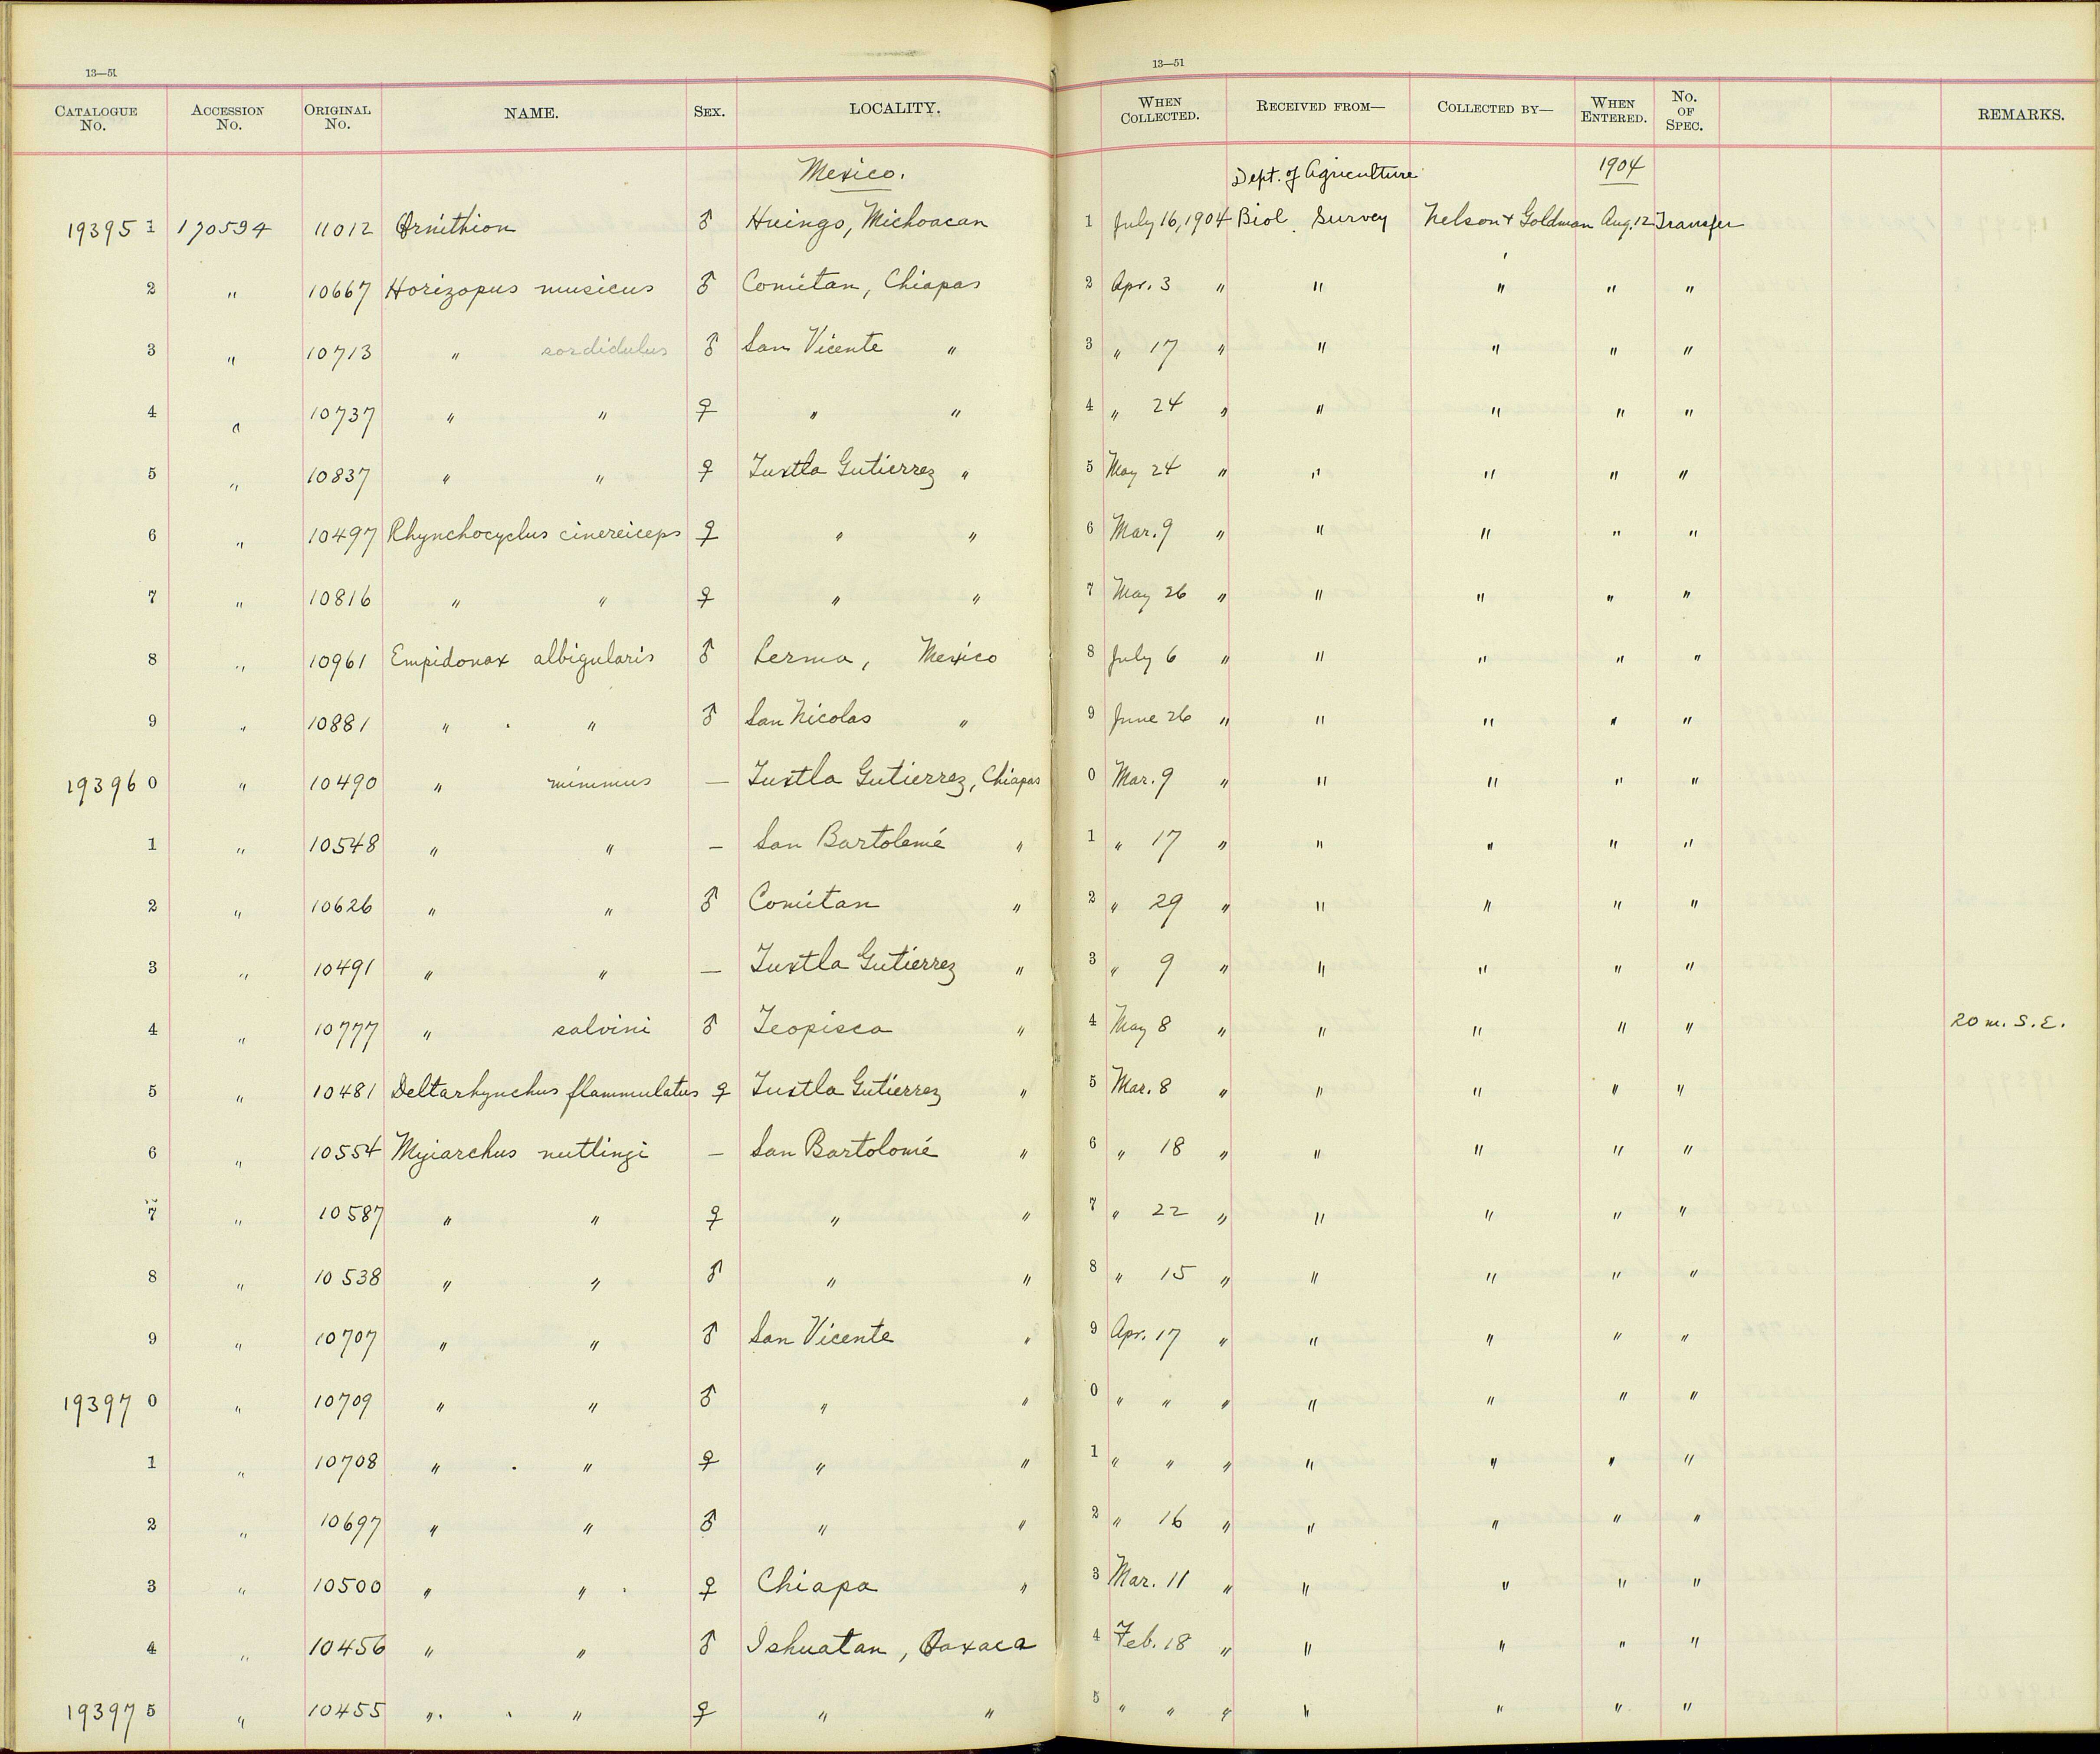 13—51
CATALOGUE No. ACCESSION No. ORIGINAL No. NAME. SEX. LOCALITY.
Mexico.
193951 170594 11012 Ornithion ♂ Huingo, Michoacan
2 " 10667 Horizopus musicus ♂ Comitan, Chiapas
3 " 10713 " sordidulus ♂ San Vicente "
4 " 10737 " " ♀ " "
5 " 10837 " " ♀ Tuxtla Gutierrez "
6 " 10497 Rhynchocyclus cinereiceps ♀ " "
7 " 10816 " " ♀ " "
8 " 10961 Empidonax albigularis ♂ Lerma, Mexico
9 " 10881 " " ♂ San Nicolas "
193960 " 10490 " minimus — Tuxtla Gutierrez, Chiapas
1 " 10548 " " — San Bartolomé "
2 " 10626 " " ♂ Comitan "
3 " 10491 " " — Tuxtla Gutierrez "
4 " 10777 " salvini ♂ Teopisca "
5 " 10481 Deltarhynchus flammulatus ♀ Tuxtla Gutierrez "
6 " 10554 Myiarchus nuttingi — San Bartolomé "
7 " 10587 " " ♀ " "
8 " 10538 " " ♂ " "
9 " 10707 " " ♂ San Vicente "
193970 " 10709 " " ♂ " "
1 " 10708 " " ♀ " "
2 " 10697 " " ♂ " "
3 " 10500 " " ♀ Chiapa "
4 " 10456 " " ♂ Ishuatan, Oaxaca
193975 " 10455 " " ♀ " "
13—51
WHEN COLLECTED. RECEIVED FROM— COLLECTED BY— WHEN ENTERED. No. OF SPEC. REMARKS.
Dept. of Agriculture 1904
1 July 16, 1904 Biol. Survey Nelson & Goldman Aug. 12 Transfer
2 Apr. 3 " " " " "
3 " 17 " " " " "
4 " 24 " " " " "
5 May 24 " " " " "
6 Mar. 9 " " " " "
7 May 26 " " " " "
8 July 6 " " " " "
9 June 26 " " " " "
0 Mar. 9 " " " " "
1 " 17 " " " " "
2 " 29 " " " " "
3 " 9 " " " " "
4 May 8 " " " " " 20 m. S.E.
5 Mar. 8 " " " " "
6 " 18 " " " " "
7 " 22 " " " " "
8 " 15 " " " " "
9 Apr. 17 " " " " "
0 " " " " " " "
1 " " " " " " "
2 " 16 " " " " "
3 Mar. 11 " " " " "
4 Feb. 18 " " " " "
5 " " " " " " "